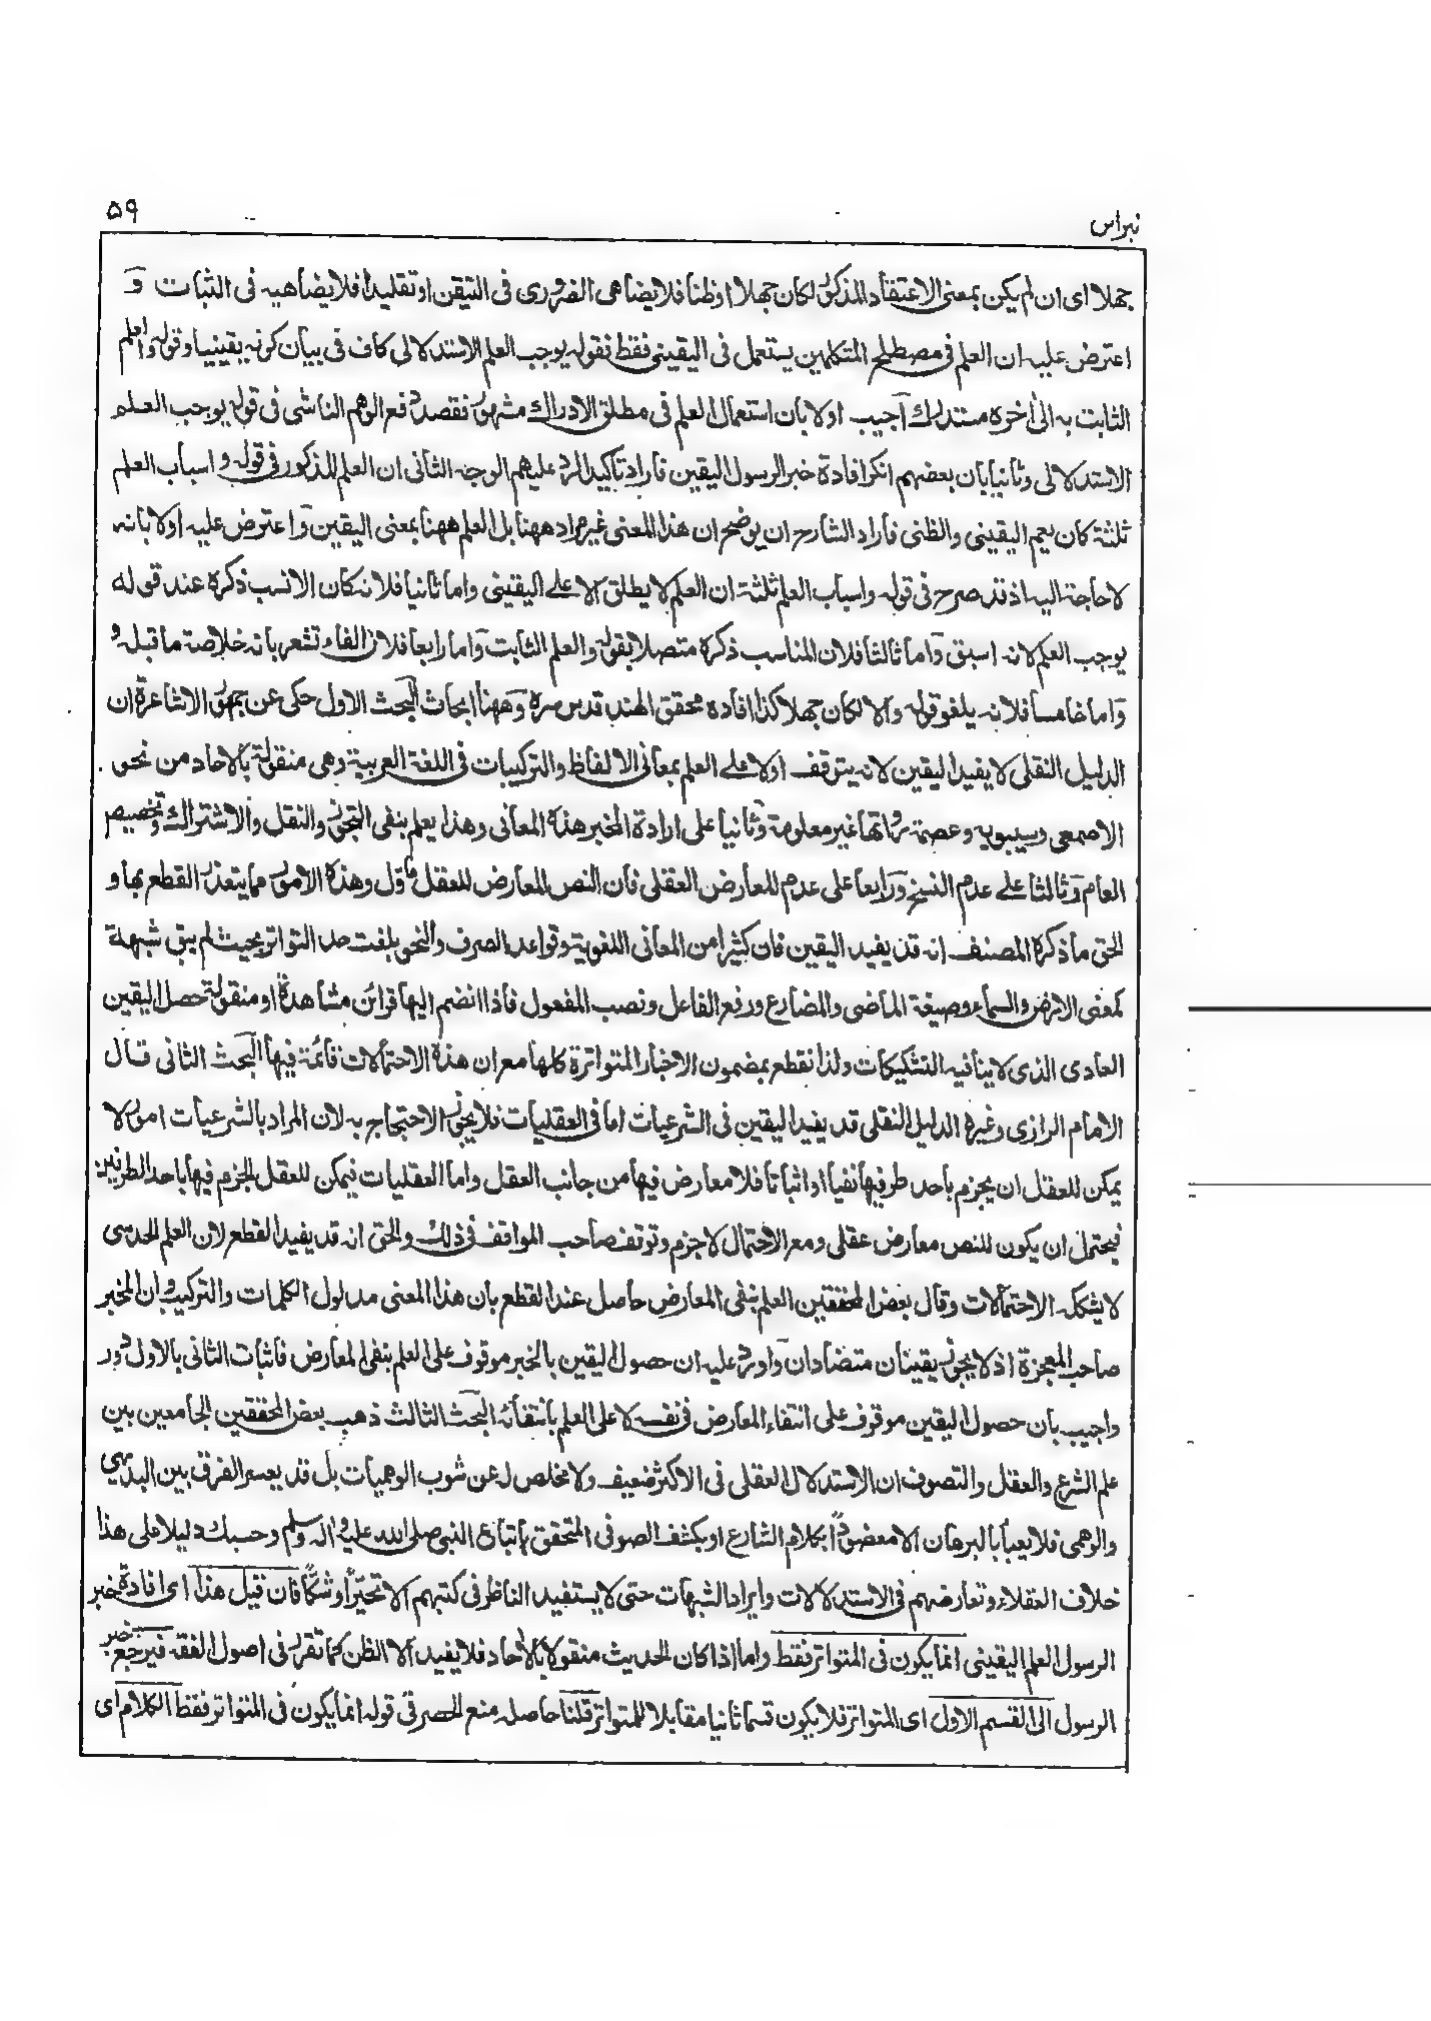 نبراس
۵۹
جهلا اى ان لم يكن بمعنى الاعتقاد المذكور لكان جهلا او ظنا فلا يضاهى الضرورى فى التيقن او تقليدا فلا يضاهيه فى الثبات و
اعترض عليه ان العلم فى مصطلح المتكلمين يستعمل فى اليقينى فقط فقوله يوجب العلم الاستدلالى كاف فى بيان كونه يقينيا وقوله والعلم
الثابت به الى اخره مستدرك اجيب اولا بان استعمال العلم فى مطلق الادراك مشهور فقصد دفع الوهم الناشى فى قوله يوجب العلم
الاستدلالى وثانيا بان بعضهم انكر افادة خبر الرسول اليقين فاراد تاكيد الرد عليهم الوجه الثانى ان العلم المذكور فى قوله و اسباب العلم
ثلثة كان يعم اليقينى والظنى فاراد الشارح ان يوضح ان هذا المعنى غير مراد ههنا بل العلم ههنا بمعنى اليقين و اعترض عليه اولا بانه
لا حاجة اليه اذ قد صرح فى قوله واسباب العلم ثلثة ان العلم لا يطلق الا على اليقينى واما ثانيا فلانه كان الانسب ذكره عند قوله
يوجب العلم لانه اسبق واما ثالثا فلان المناسب ذكره متصلا بقوله والعلم الثابت واما رابعا فلان الفاء تشعر بانه خلاصة ما قبله و
واما خامسا فلانه يلغو قوله والا لكان جهلا كذا افاده محقق الهند قدس سره وههنا ابحاث البحث الاول حكى عن جمهور الاشاعرة ان
الدليل النقلى لا يفيد اليقين لانه يتوقف اولا على العلم بمعانى الالفاظ والتركيبات فى اللغة العربية وهى منقولة بالاحاد من نحو
الاصمعى وسيبويه وعصمة رواتها غير معلومة وثانيا على ارادة المخبر هذه المعانى وهذا يعلم بنفى التجوز والنقل والاشتراك وتخصيص
العام وثالثا على عدم النسخ ورابعا على عدم المعارض العقلى فان النص المعارض للعقل ماول وهذه الامور مما يتعذر القطع بها و
الحق ما ذكره المصنف انه قد يفيد اليقين فان كثيرا من المعانى اللغوية وقواعد الصرف والنحو بلغت حد التواتر بحيث لم يبق شبهة
كمعنى الارض والسماء وصيغة الماضى والمضارع ورفع الفاعل ونصب المفعول فاذا انضم اليها قرائن مشاهدة او منقولة حصل اليقين
العادى الذى لا ينافيه التشكيكات ولذا نقطع بمضمون الاخبار المتواترة كلها مع ان هذه الاحتمالات قائمة فيها البحث الثانى قال
الامام الرازى وغيره الدليل النقلى قد يفيد اليقين فى الشرعيات اما فى العقليات فلا يجوز الاحتجاج به لان المراد بالشرعيات امور لا
يمكن للعقل ان يجزم باحد طرفيها نفيا او اثباتا فلا معارض فيها من جانب العقل واما العقليات فيمكن للعقل الجزم فيها باحد الطرفين
فيحتمل ان يكون للنص معارض عقلى ومع الاحتمال لا جزم وتوقف صاحب المواقف فى ذلك والحق انه قد يفيد القطع لان العلم الحدسى
لا يشكله الاحتمالات وقال بعض المحققين العلم بنفى المعارض حاصل عند القطع بان هذا المعنى مدلول الكلمات والتركيب وان المخبر
صاحب المعجزة اذ لا يجوز يقينان متضادان واورد عليه ان حصول اليقين بالخبر موقوف على العلم بنفى المعارض فاثبات الثانى بالاول دور
واجيب بان حصول اليقين موقوف على انتفاء المعارض فى نفسه لا على العلم بانتفائه البحث الثالث ذهب بعض المحققين الجامعين بين
علم الشرع والعقل والتصوف ان الاستدلال العقلى فى الاكثر ضعيف ولا مخلص له عن شوب الوهميات بل قد يعسر الفرق بين البديهى
والوهمى فلا يعبأ بالبرهان الا معضودا بكلام الشارع او بكشف الصوفى المتحقق باتباع النبى صلى الله عليه واله وسلم وحسبك دليلا على هذا
خلاف العقلاء وتعارضهم فى الاستدلالات وايراد الشبهات حتى لا يستفيد الناظر فى كتبهم الا تحيرا وشكا فان قيل هذا اى افادة خبر
الرسول العلم اليقينى انما يكون فى المتواتر فقط واما اذا كان الحديث منقولا بالاحاد فلا يفيد الا الظن كما تقرر فى اصول الفقه فيرجع خبر
الرسول الى القسم الاول اى المتواتر فلا يكون قسما ثانيا مقابلا للمتواتر قلنا حاصله منع الحصر فى قوله انما يكون فى المتواتر فقط الكلام اى